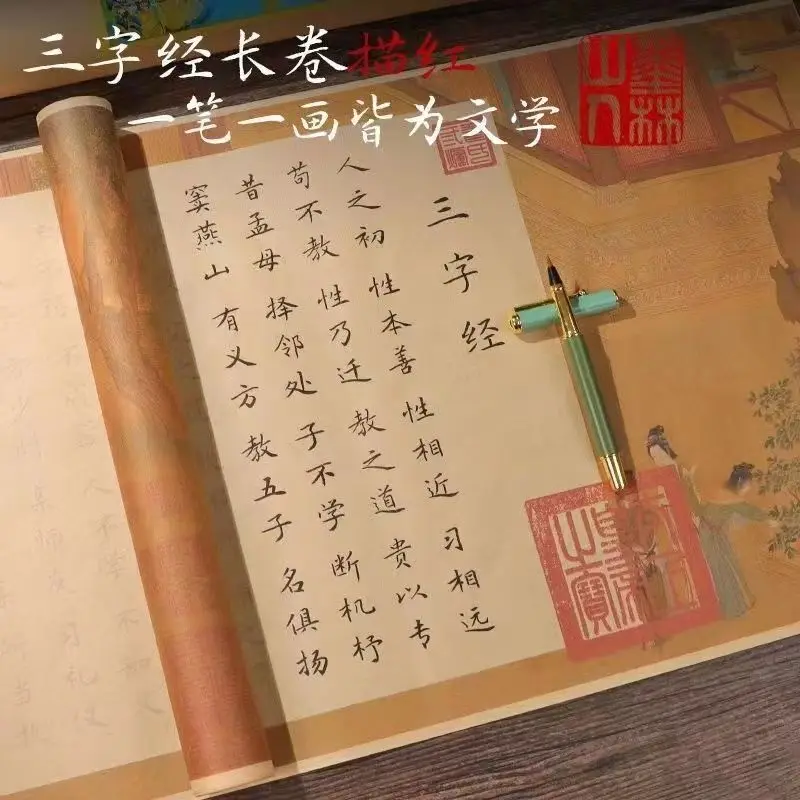 三字经长卷描红
一笔一画皆为文学
三字经
人之初 性本善 性相近 习相远
苟不教 性乃迁 教之道 贵以专
昔孟母 择邻处 子不学 断机杼
窦燕山 有义方 教五子 名俱扬